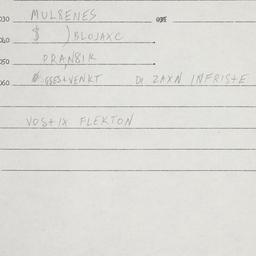 030 MULSENES
040 $ ) BLOJAXC
050 DRANSIK
060 GGES+VENKT DI ZAXN INFRIS+E
VOS+IX FLEKTON